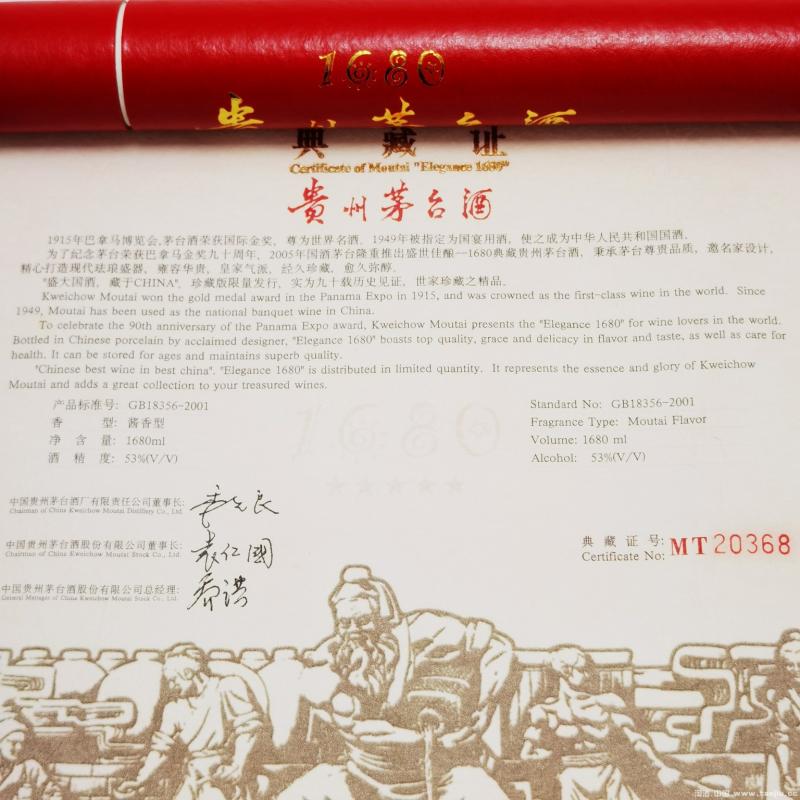 1680
贵州茅台酒
典藏证
Certificate of Moutai "Elegance 1680"
貴州茅台酒
1915年巴拿马博览会,茅台酒荣获国际金奖，尊为世界名酒。1949年被指定为国宴用酒，使之成为中华人民共和国国酒。
为了纪念茅台荣获巴拿马金奖九十周年，2005年国酒茅台隆重推出盛世佳酿—1680典藏贵州茅台酒，秉承茅台尊贵品质，邀名家设计，
精心打造现代珐琅盛器，雍容华贵，皇家气派，经久珍藏，愈久弥醇。
"盛大国酒，藏于CHINA"，珍藏版限量发行，实为九十载历史见证，世家珍藏之精品。
Kweichow Moutai won the gold medal award in the Panama Expo in 1915, and was crowned as the first-class wine in the world. Since
1949, Moutai has been used as the national banquet wine in China.
To celebrate the 90th anniversary of the Panama Expo award, Kweichow Moutai presents the "Elegance 1680" for wine lovers in the world.
Bottled in Chinese porcelain by acclaimed designer, "Elegance 1680" boasts top quality, grace and delicacy in flavor and taste, as well as care for
health. It can be stored for ages and maintains superb quality.
"Chinese best wine in best china". "Elegance 1680" is distributed in limited quantity. It represents the essence and glory of Kweichow
Moutai and adds a great collection to your treasured wines.
产品标准号: GB18356-2001
Standard No: GB18356-2001
香 型: 酱香型
Fragrance Type: Moutai Flavor
净 含 量: 1680ml
Volume: 1680 ml
酒 精 度: 53%(V/V)
Alcohol: 53%(V/V)
1680
中国贵州茅台酒厂有限责任公司董事长:
Chairman of China Kweichow Moutai Distillery Co., Ltd.
中国贵州茅台酒股份有限公司董事长:
袁仁國
Chairman of China Kweichow Moutai Stock Co., Ltd.
中国贵州茅台酒股份有限公司总经理:
General Manager of China Kweichow Moutai Stock Co., Ltd.
典 藏 证 号:
Certificate No: MT20368